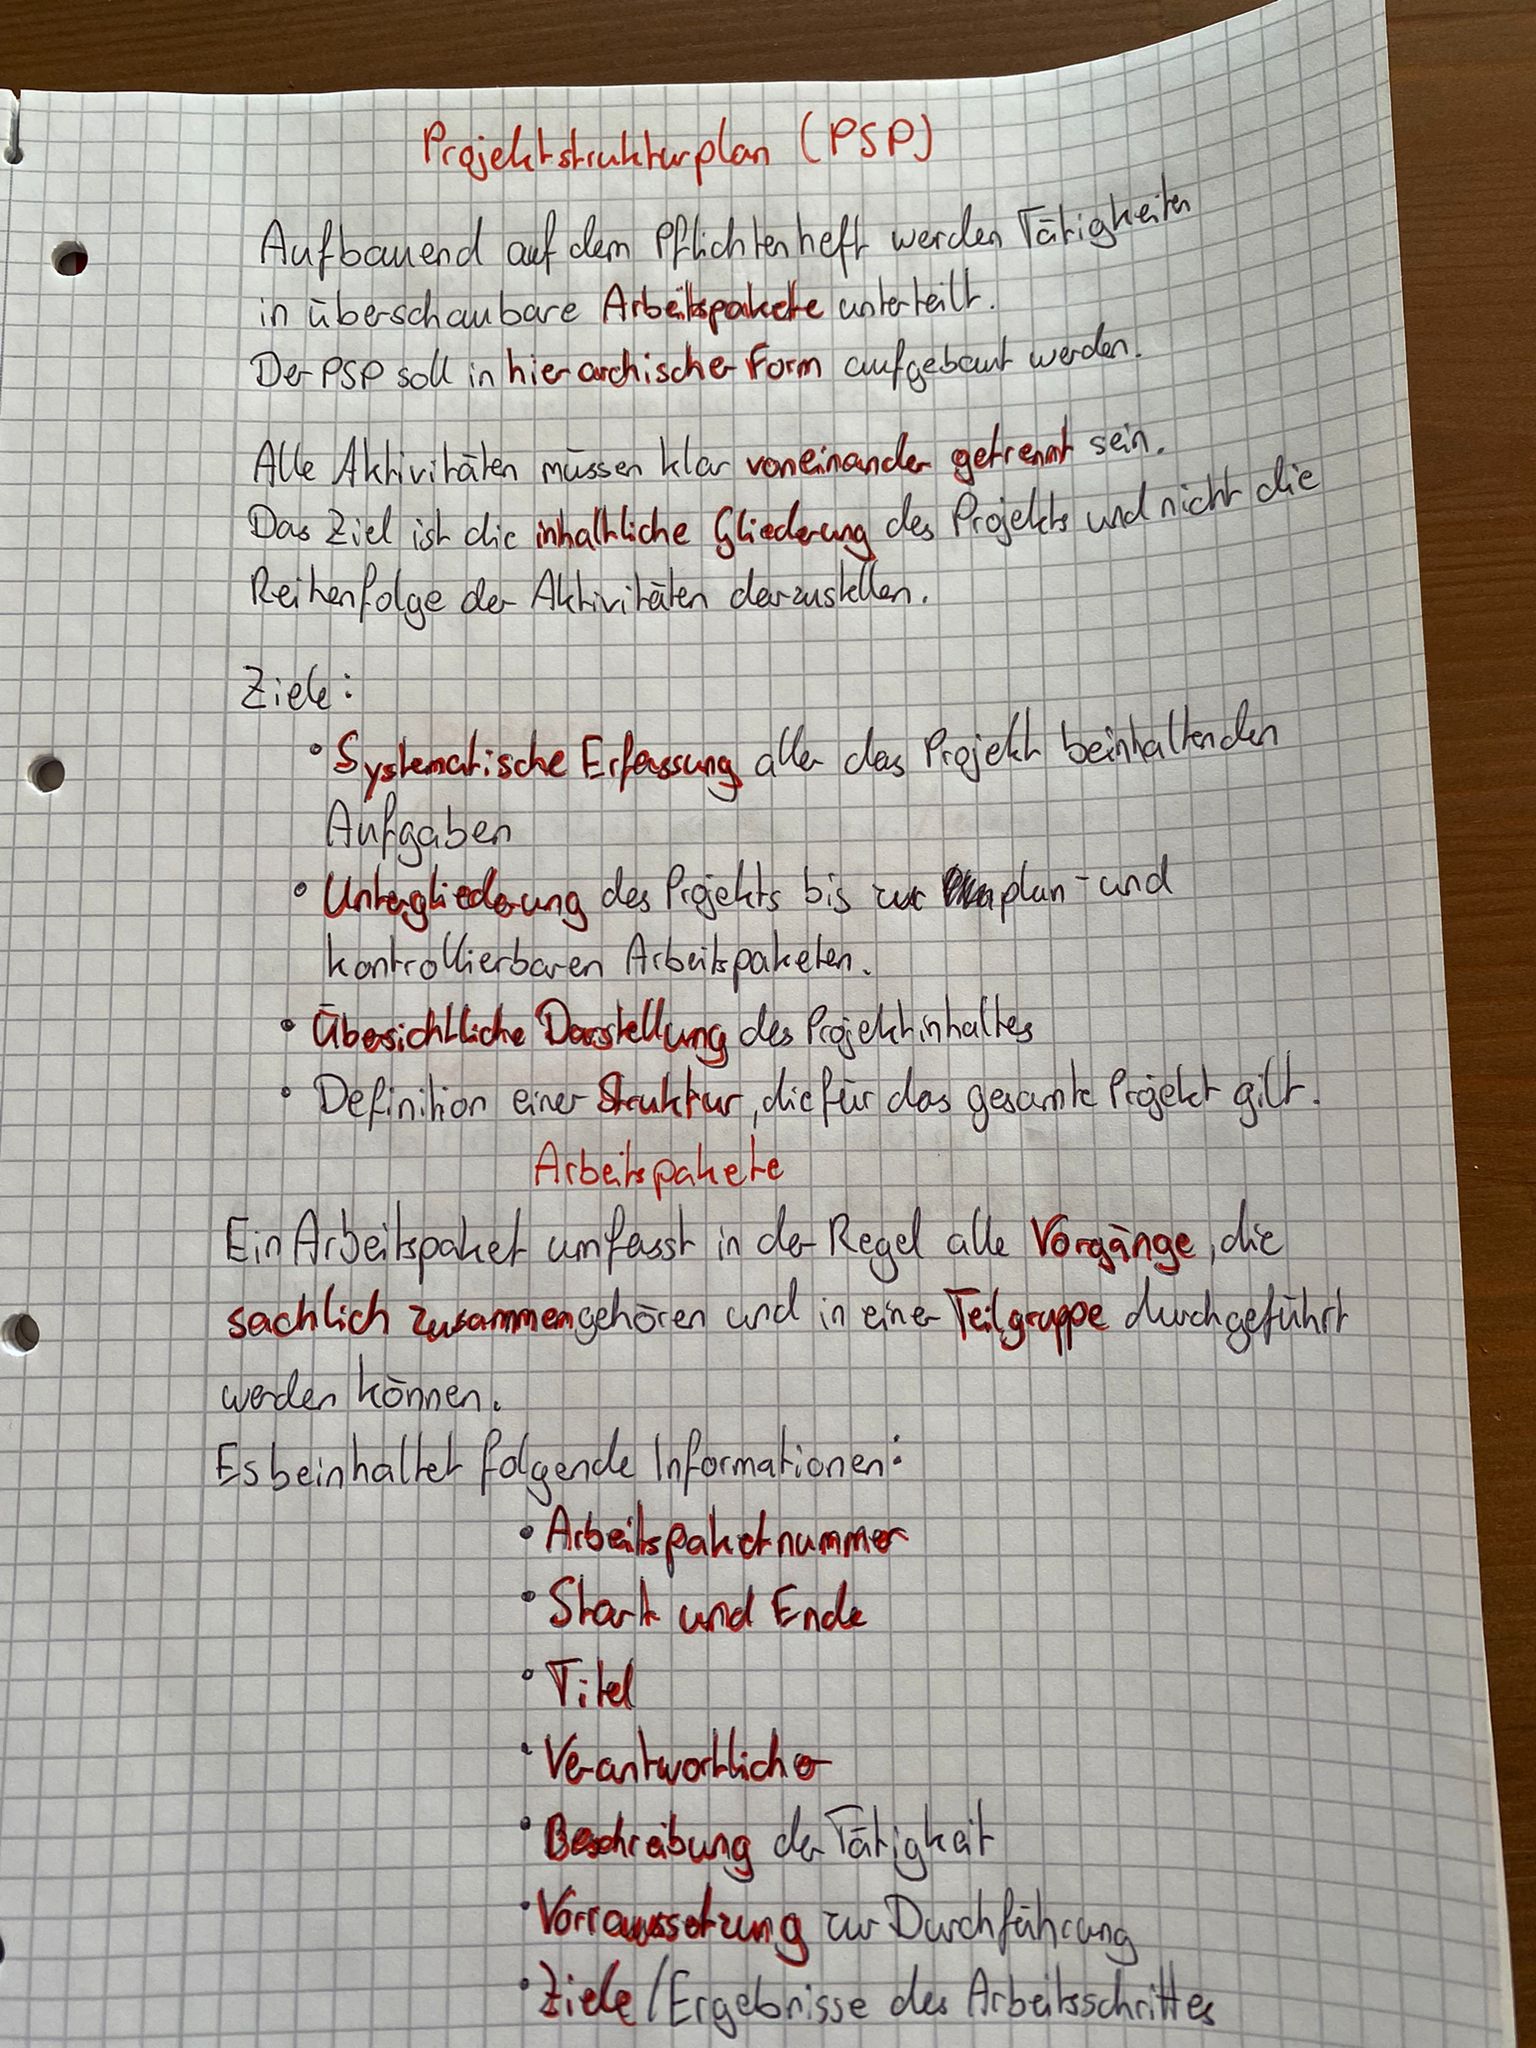 Projektstrukturplan (PSP)
Aufbauend auf dem Pflichtenheft werden Tätigkeiten
in überschaubare Arbeitspakete unterteilt.
Der PSP soll in hierarchischer Form aufgebaut werden.
Alle Aktivitäten müssen klar voneinander getrennt sein.
Das Ziel ist die inhaltliche Gliederung des Projekts und nicht die
Reihenfolge der Aktivitäten darzustellen.
Ziele:
• Systematische Erfassung aller das Projekt beinhaltenden
Aufgaben
• Untergliederung des Projekts bis zur plan- und
kontrollierbaren Arbeitspaketen.
• Übersichtliche Darstellung des Projektinhaltes
• Definition einer Struktur, die für das gesamte Projekt gilt.
Arbeitspakete
Ein Arbeitspaket umfasst in der Regel alle Vorgänge, die
sachlich zusammengehören und in einer Teilgruppe durchgeführt
werden können.
Es beinhaltet folgende Informationen:
• Arbeitspaketnummer
• Start und Ende
• Titel
• Verantwortlicher
• Beschreibung der Tätigkeit
• Vorraussetzung zur Durchführung
• Ziele/Ergebnisse des Arbeitsschrittes